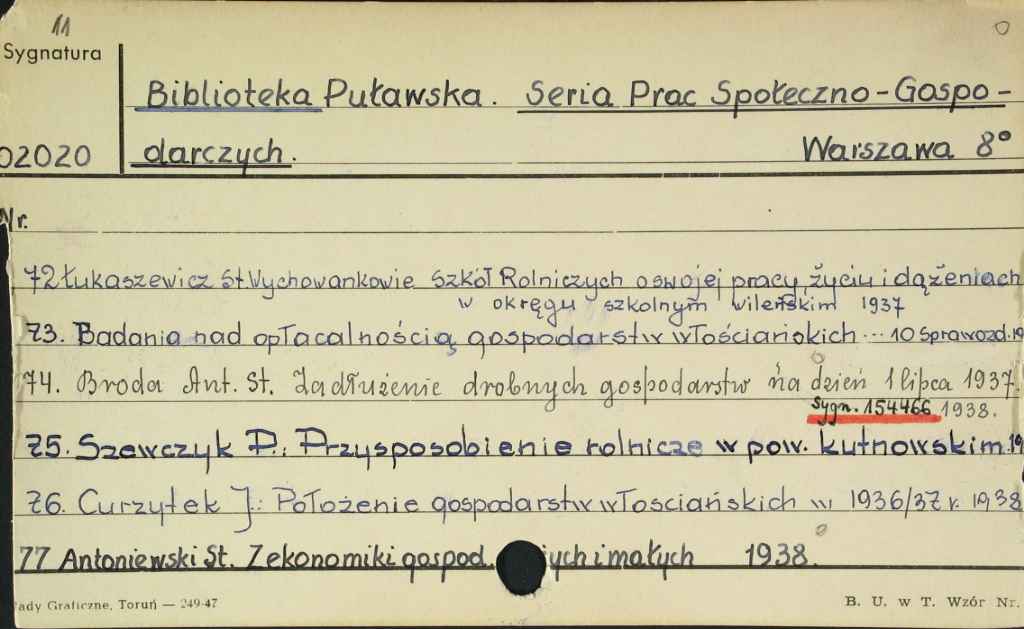 11
Sygnatura
Biblioteka Puławska. Seria Prac Społeczno-Gospo-
02020 darczych. Warszawa 8°
Nr.
72 Łukaszewicz St. Wychowankowie szkół Rolniczych o swojej pracy, życiu i dążeniach
w okręgu szkolnym wileńskim 1937
73. Badania nad opłacalnością gospodarstw włościańskich ... 10 Sprawozd. 19
74. Broda Ant. St. Zadłużenie drobnych gospodarstw na dzień 1 lipca 1937.
Sygn. 154466 1938.
75. Szewczyk P.: Przysposobienie rolnicze w pow. kutnowskim. 19
76. Curzytek J.: Położenie gospodarstw włościańskich w 1936/37 r. 1938
77 Antoniewski St. Z ekonomiki gospod. ych i małych 1938.
ady Graficzne, Toruń — 249-47 B. U. w T. Wzór Nr.